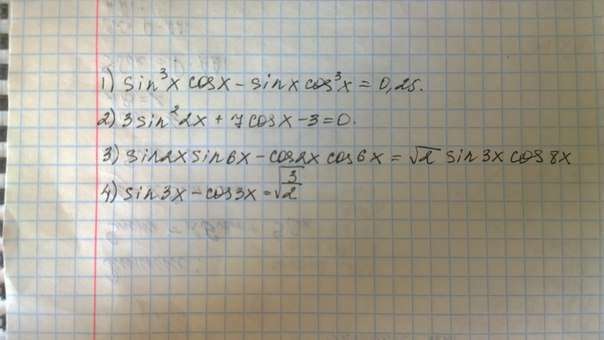 1) sin³x cosx - sinx cos³x = 0,25.
2) 3sin²2x + 7cosx - 3 = 0.
3) sin2x sin6x - cos2x cos6x = √2 sin3x cos8x
4) sin3x - cos3x = √(3/2)